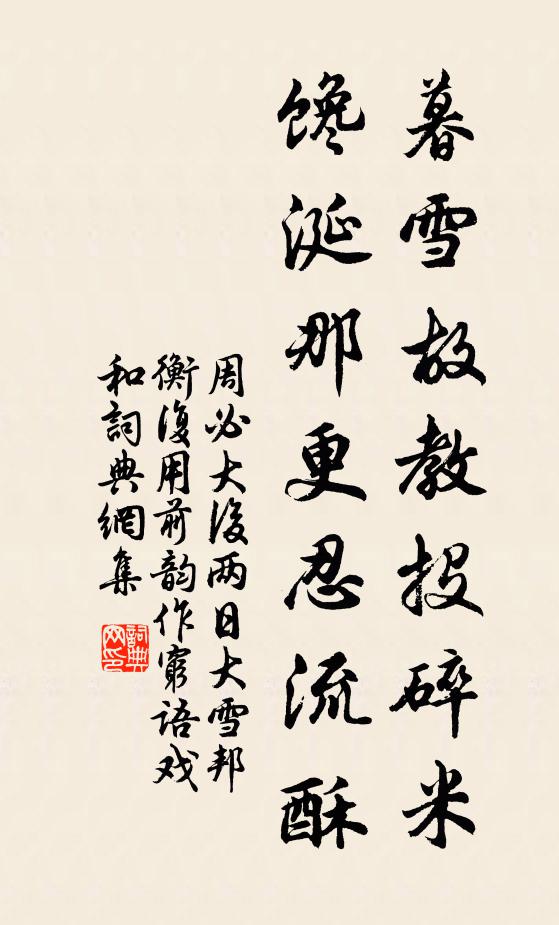 暮雪故教投碎米
馋涎那更忍流酥
周必大後两日大雪邦
衡復用前韵作窮语戏
和词典網集
詞典網印